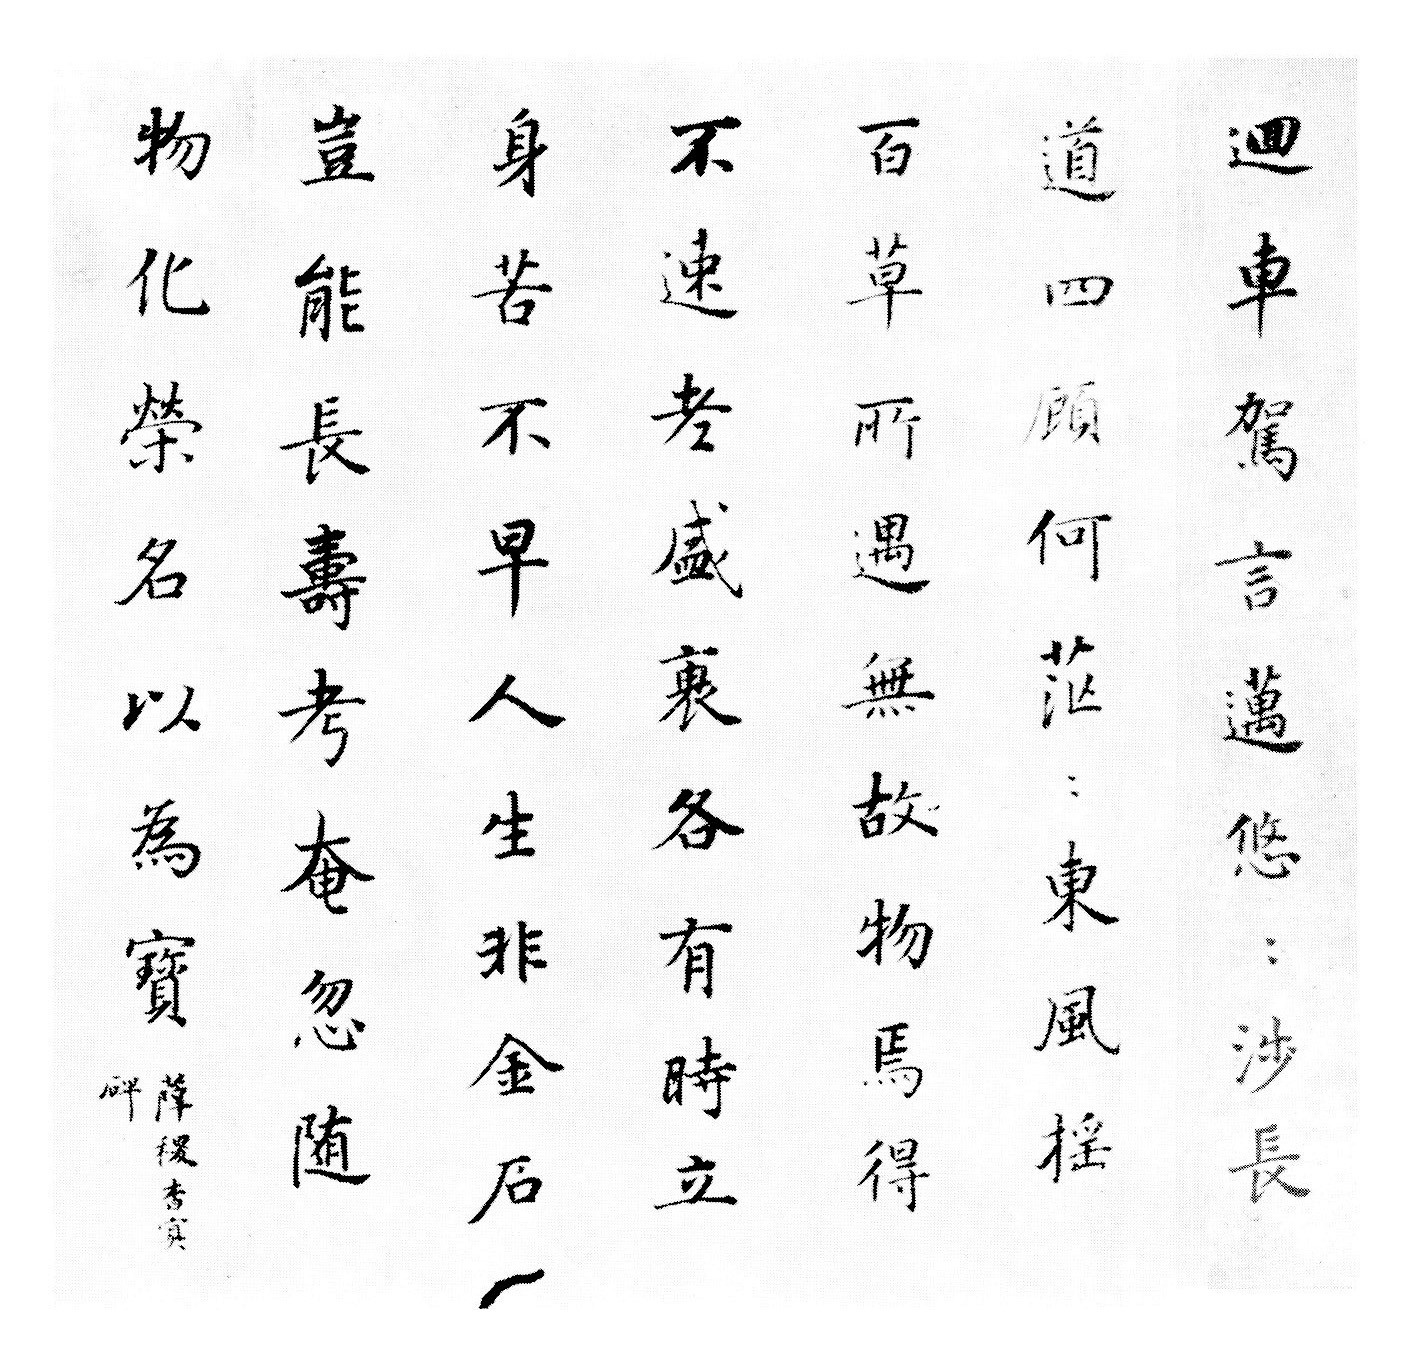 迴車駕言邁悠:涉長
道四顧何茫:東風揺
百草所遇無故物焉得
不速老盛衰各有時立
身苦不早人生非金石
豈能長壽考奄忽随
物化榮名以為寶
薛稷杳冥
碑